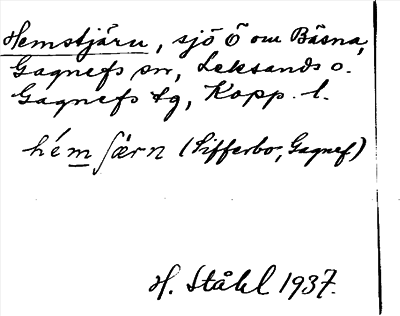 Hemstjärn, sjö Ö om Bäsna,
Gagnefs sn, Leksands o.
Gagnefs tg, Kopp. l.
hémʃærn (Sifferbo, Gagnef)
H. Ståhl 1937.